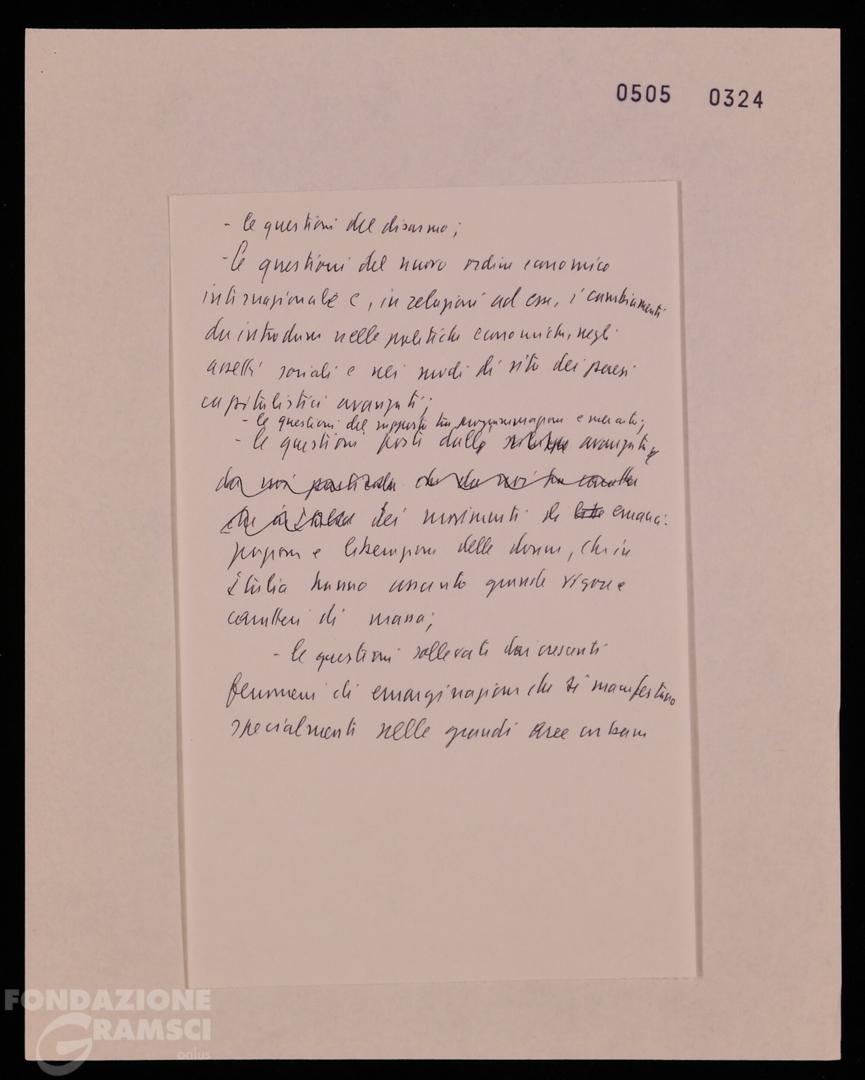 0505 0324
- le questioni del disarmo;
- le questioni del nuovo ordine economico
internazionale e, in relazione ad esse, i cambiamenti
da introdurre nelle politiche economiche, negli
assetti sociali e nei modi di vita dei paesi
capitalistici avanzati;
- le questioni del rapporto tra programmazione e mercato;
- le questioni poste dalle avanzate
da noi
dei movimenti di emanci-
pazione e liberazione delle donne, che in
Italia hanno assunto grande vigore e
caratteri di massa;
- le questioni sollevate dai crescenti
fenomeni di emarginazione che si manifestano
specialmente nelle grandi aree urbane
FONDAZIONE
GRAMSCI
onlus